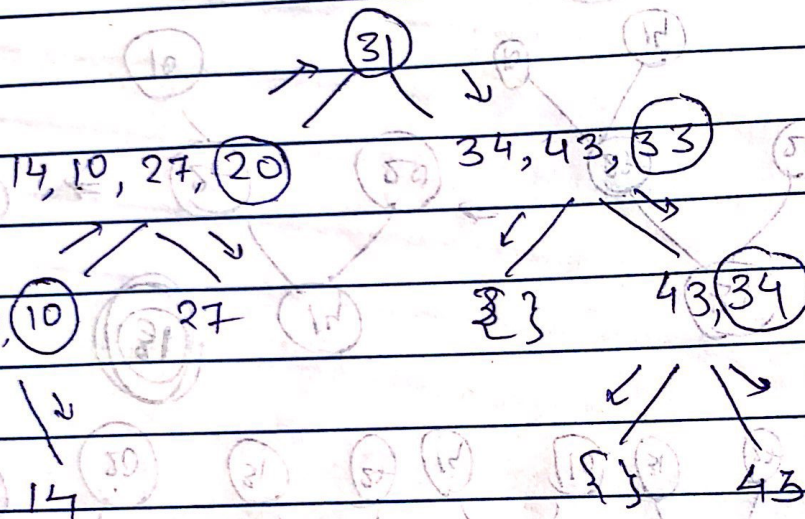 31
14, 10, 27, 20 34, 43, 33
, 10 27 { } 43, 34
14 { } 43